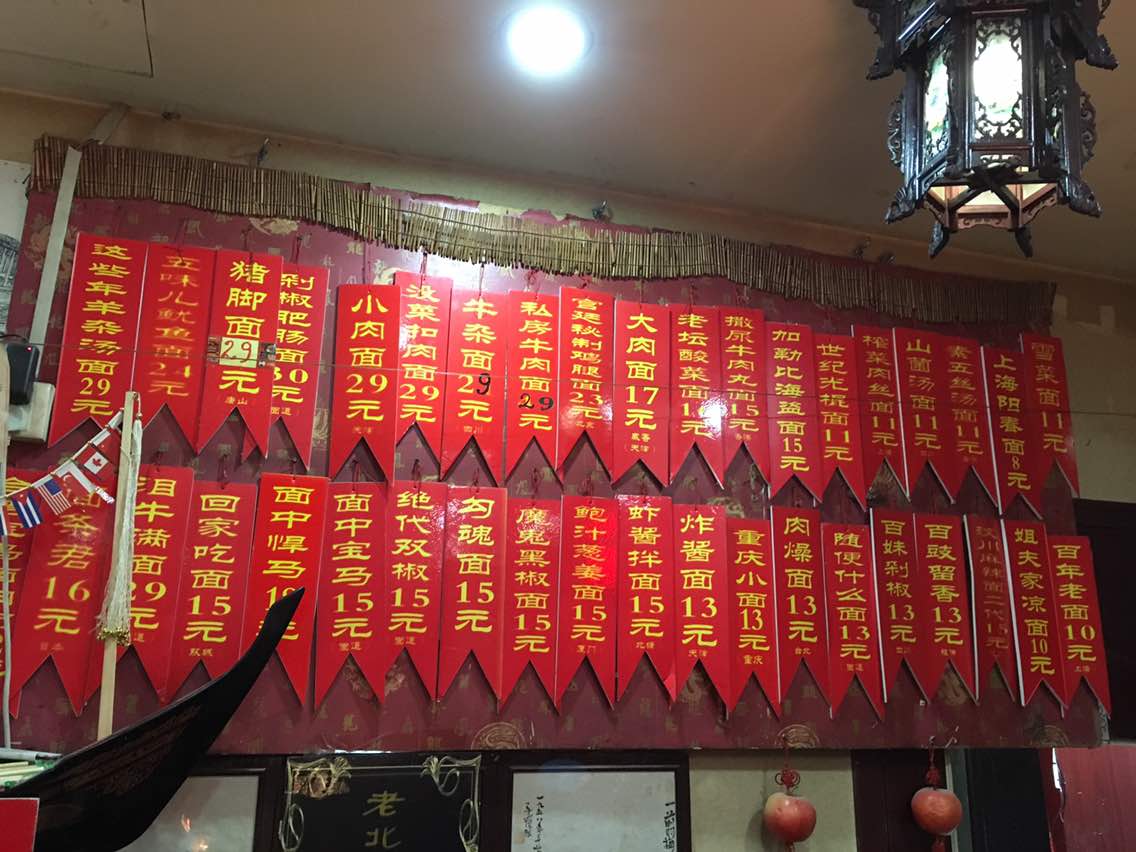 这些年羊杂汤面29元
五味儿鱿鱼面24元
猪脚面29元
唐山
剁椒肥肠面30元
小肉面29元
天津
没菜扣肉面29元
牛杂面29元
四川
私房牛肉面29
宫廷秘制鸡腿面23元
北京
大肉面17元
天津
老坛酸菜面
元
撒尿牛肉丸面15元
香港
加勒比海盗面15元
世纪光棍面11元
榨菜肉丝面11元
上海
山菌汤面11元
素五丝汤面11元
上海阳春面8元
雪菜面11元
君16元
日本
泪牛满面29元
回家吃面15元
面中悍马
元
面中宝马15元
绝代双椒15元
勾魂面15元
魔鬼黑椒面15元
鲍汁葱姜面15元
厦门
虾酱拌面15元
炸酱面13元
天津
重庆小面13元
重庆
肉燥面13元
台北
随便什么面13元
百妹剁椒13元
百豉留香13元
姐夫家凉面10元
百年老面10元
上海
老北